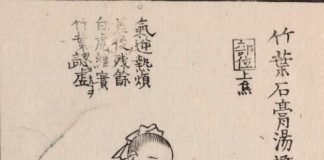 竹葉石膏湯證
部位上焦
氣逆熱煩
其後殘餘
白虎雖實
竹葉認虛ヲ